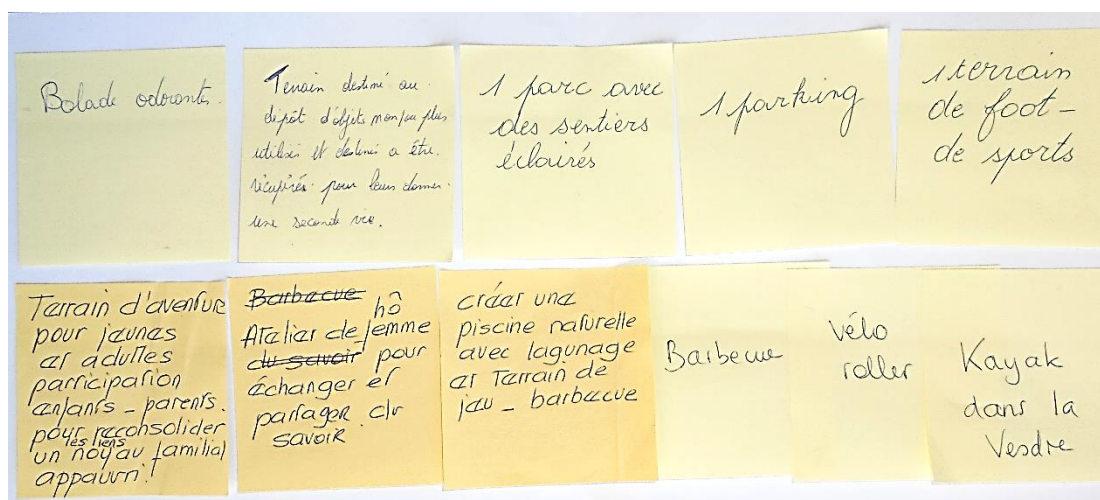 Balade odorantes.
Terrain destiné au
dépôt d'objets non/ou plus
utilisés et destinés a être
récupérés pour leurs donner
une seconde vie.
1 parc avec
des sentiers
éclairés
1 parking
1 terrain
de foot -
de sports
Terrain d'aventure
pour jeunes
et adultes
participation
enfants - parents.
pour reconsolider
les liens
un noyau familial
appauvri!
Barbacue
hô
Atelier de femme
du savoir pour
échanger et
partager du
savoir
créer une
piscine naturelle
avec lagunage
et Terrain de
jeu - barbecue
Barbecue
Vélo
roller
Kayak
dans la
Vesdre